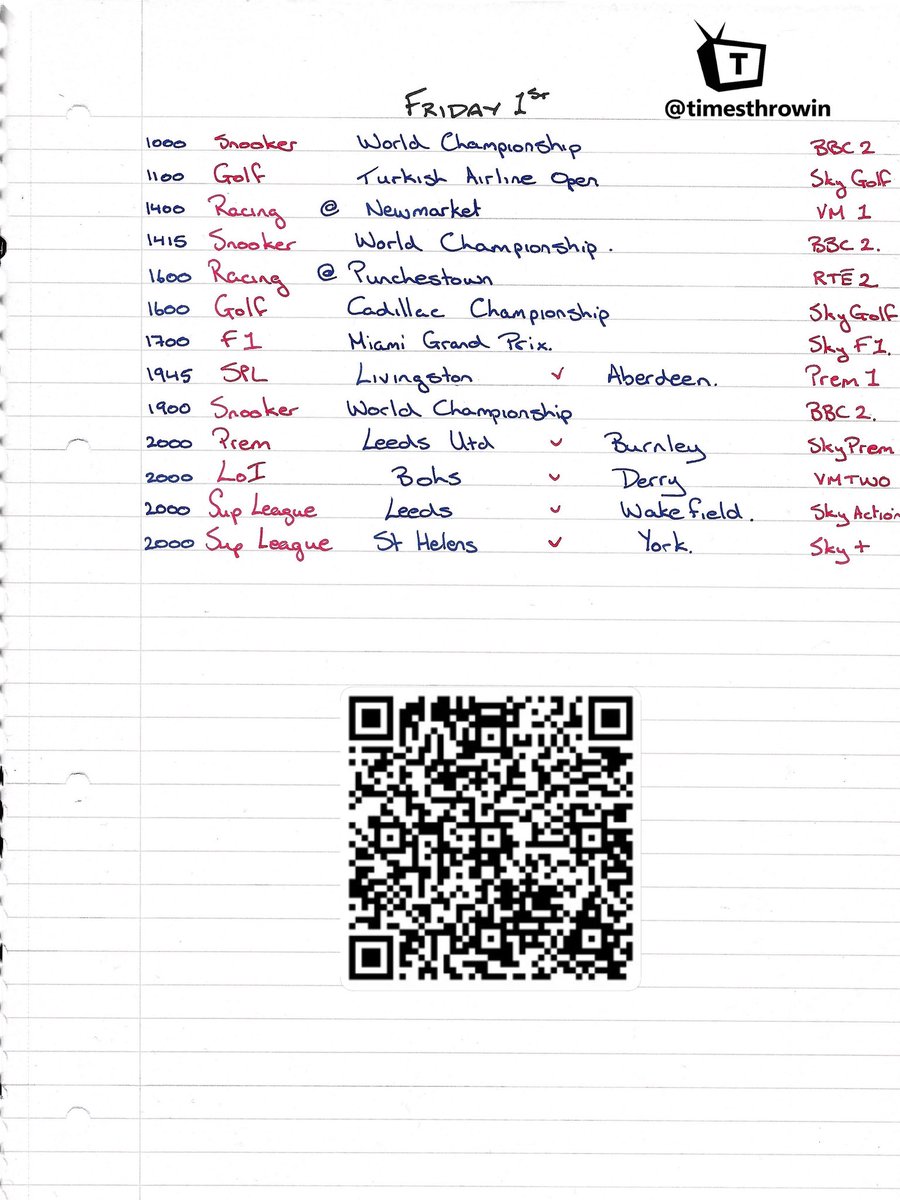 T
@timesthrowin
FRIDAY 1ST
1000 Snooker World Championship BBC 2
1100 Golf Turkish Airline Open Sky Golf
1400 Racing @ Newmarket VM 1
1415 Snooker World Championship. BBC 2.
1600 Racing @ Punchestown RTÉ 2
1600 Golf Cadillac Championship Sky Golf
1700 F1 Miami Grand Prix. Sky F1.
1945 SPL Livingston v Aberdeen. Prem 1
1900 Snooker World Championship BBC 2.
2000 Prem Leeds Utd v Burnley Sky Prem
2000 LoI Bohs v Derry VMTWO
2000 Sup League Leeds v Wakefield. Sky Action
2000 Sup League St Helens v York. Sky +